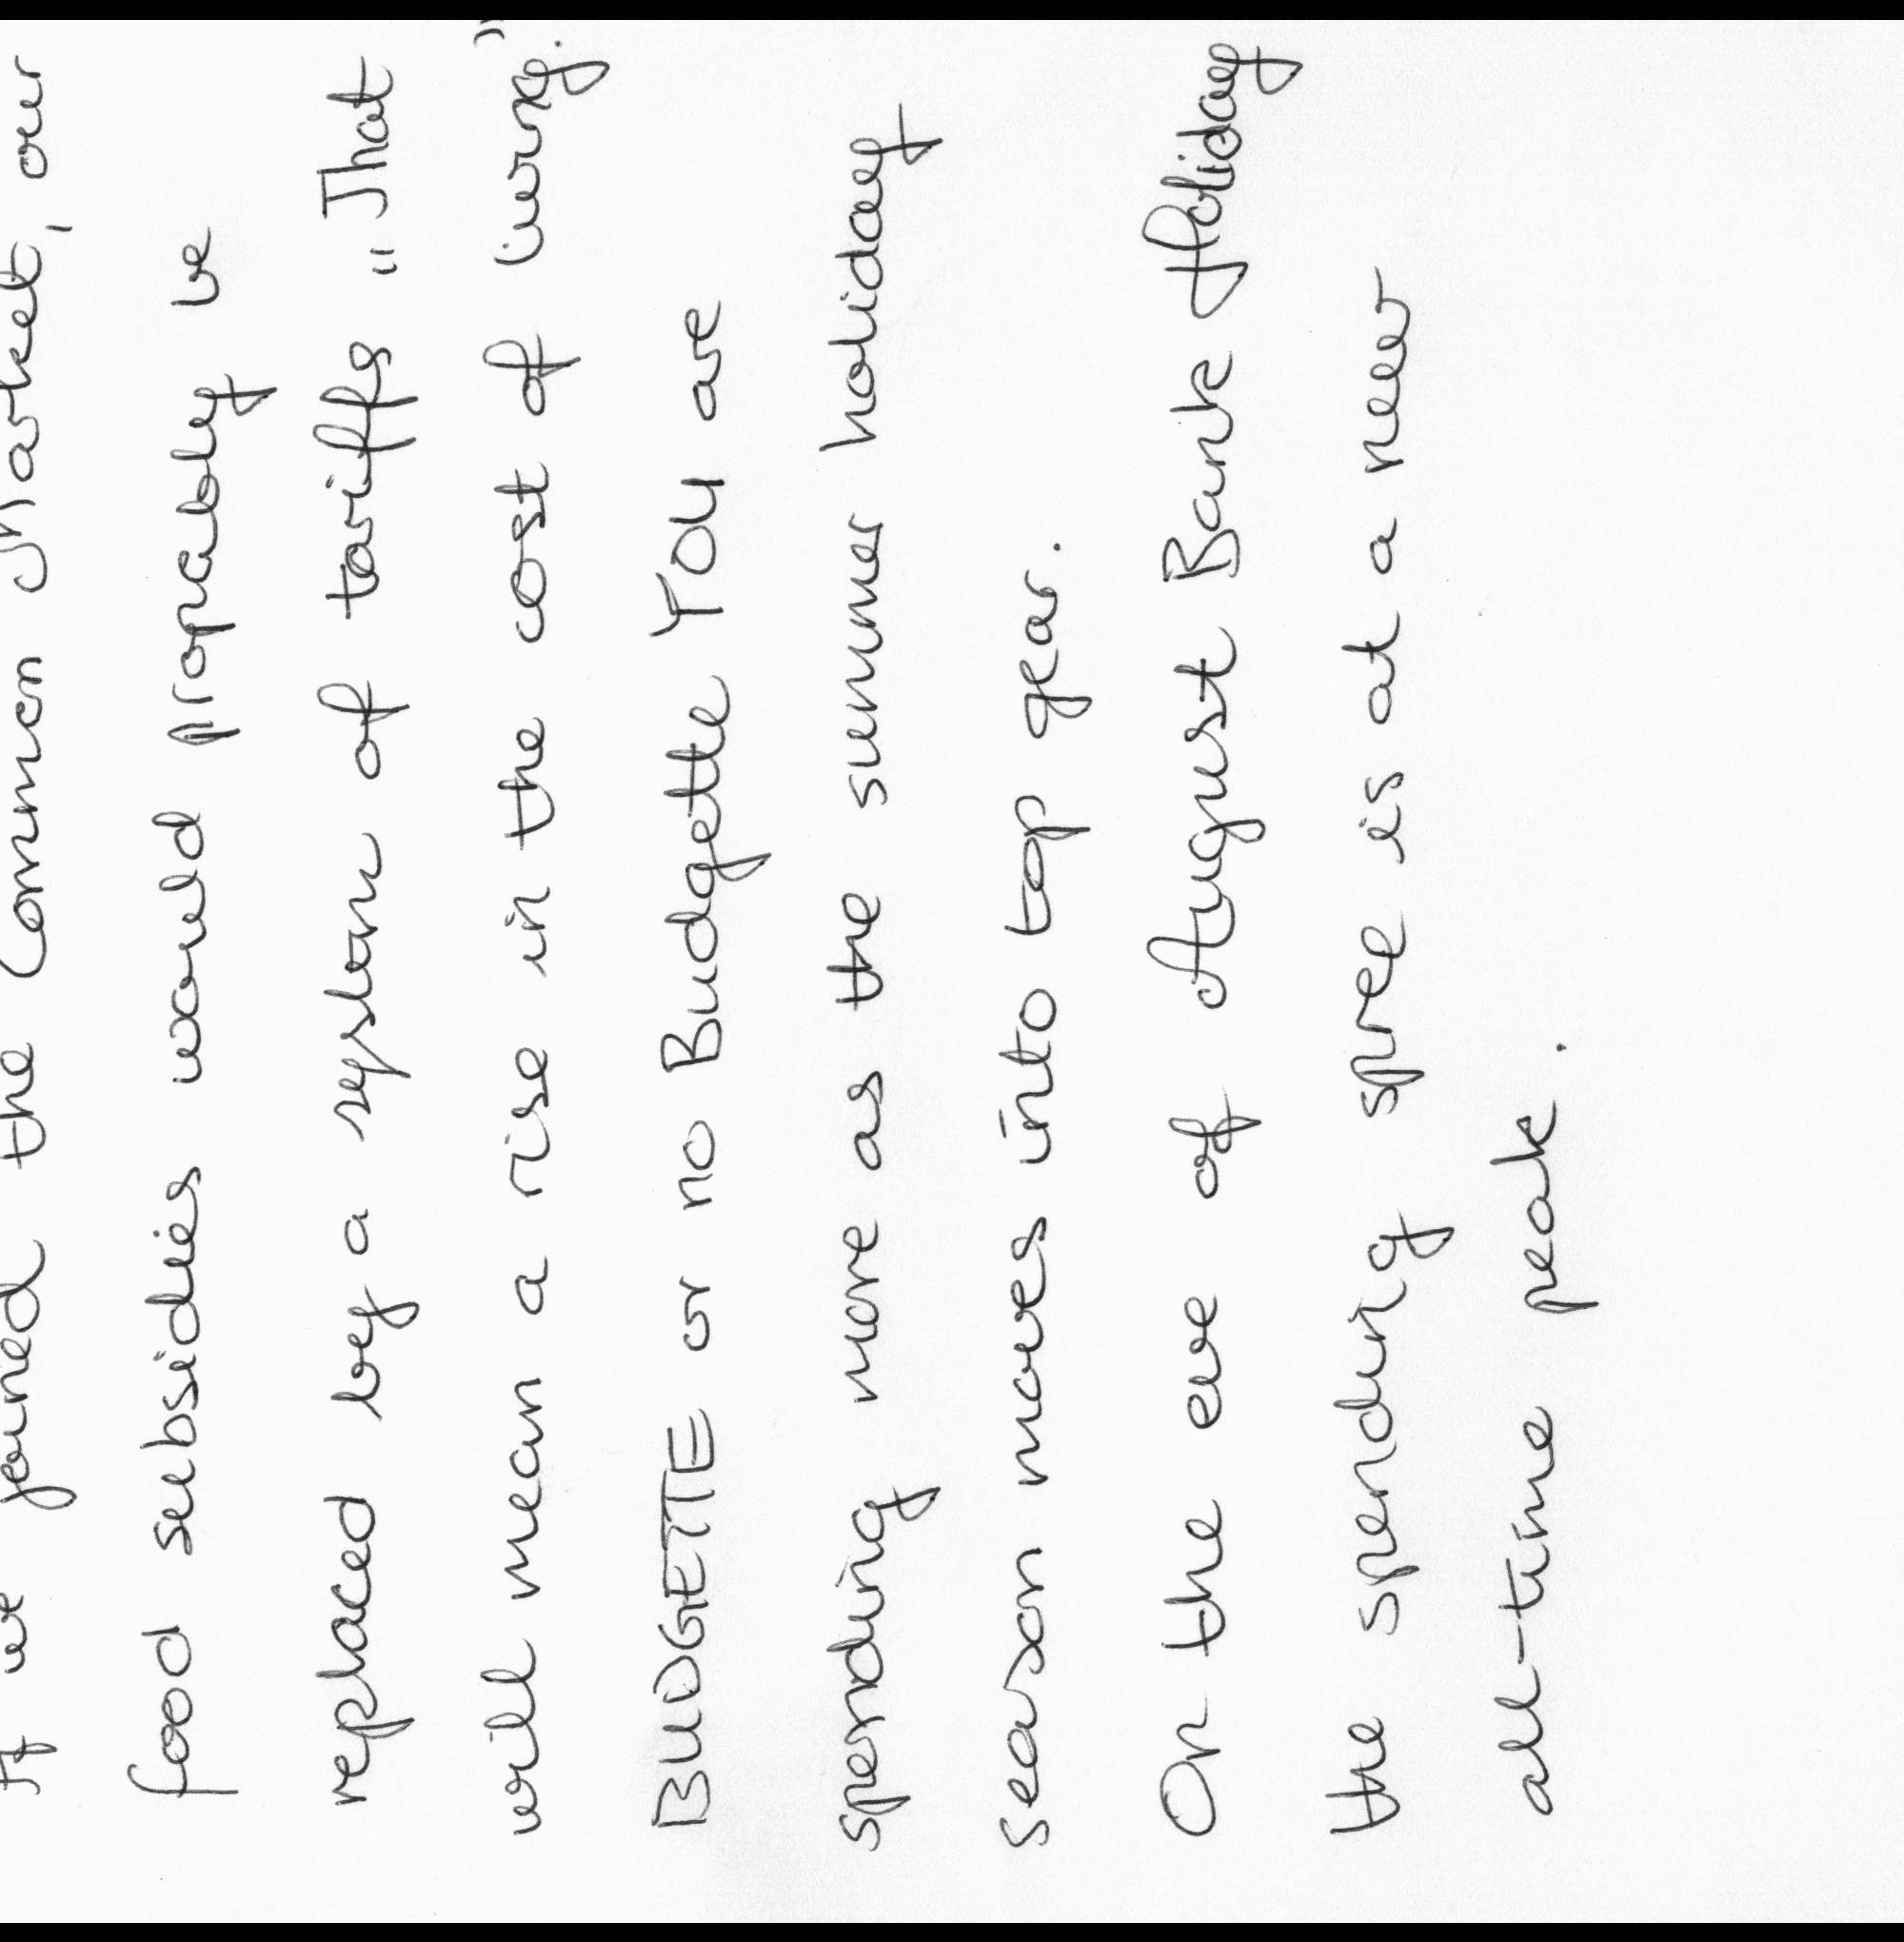 If we joined the Common Market, our
food subsidies would propably be
replaced by a system of tariffs "That
will mean a rise in the cost of living."
BUDGETTE or no Budgette YOU are
spending more as the summer holiday
season moves into top gear.
On the eve of August Bank Holiday
the spending spree is at a new
all-time peak.